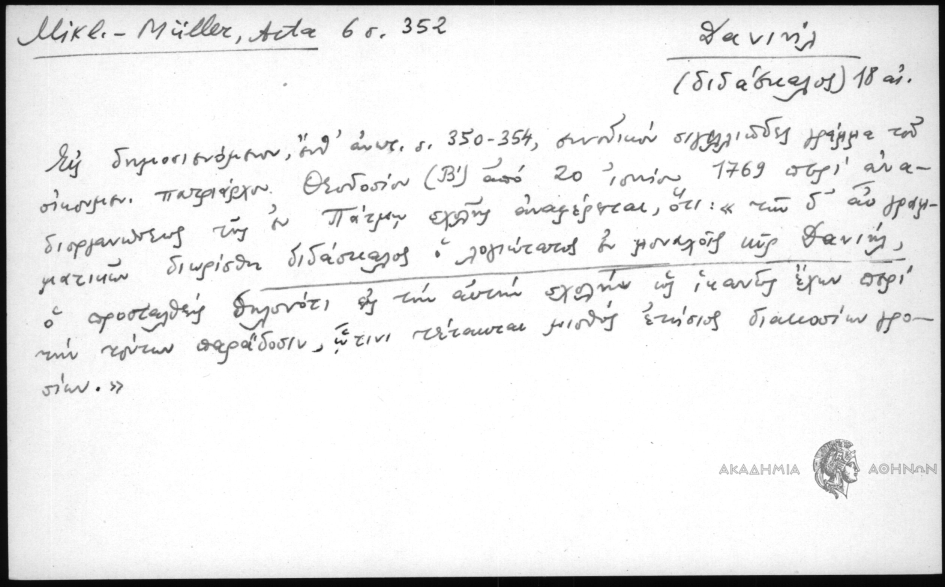 Mikl.-Müller, Acta 6 σ. 352
Δανιήλ
(διδάσκαλος) 18 αἰ.
Εἰς δημοσιευόμενον, ἔνθ' ἀνωτ. σ. 350-354, συνοδικόν σιγιλλιῶδες γράμμα τοῦ
οἰκουμεν. πατριάρχου Θεοδοσίου (Β') ἀπό 20 ἰουνίου 1769 περί ἀνα-
διοργανώσεως τῆς ἐν Πάτμῳ σχολῆς ἀναφέρεται, ὅτι: « τῶν δ' αὖ γραμ-
ματικῶν διωρίσθη διδάσκαλος ὁ λογιώτατος ἐν μοναχοῖς κὺρ Δανιήλ,
ὁ προσταχθείς δηλονότι εἰς τήν αὐτήν σχολήν ὡς ἱκανῶς ἔχων περί
τήν τούτων παράδοσιν, ᾧτινι τέτακται μισθός ἐτήσιος διακοσίων γρο-
σίων. »
ΑΚΑΔΗΜΙΑ ΑΘΗΝΩΝ